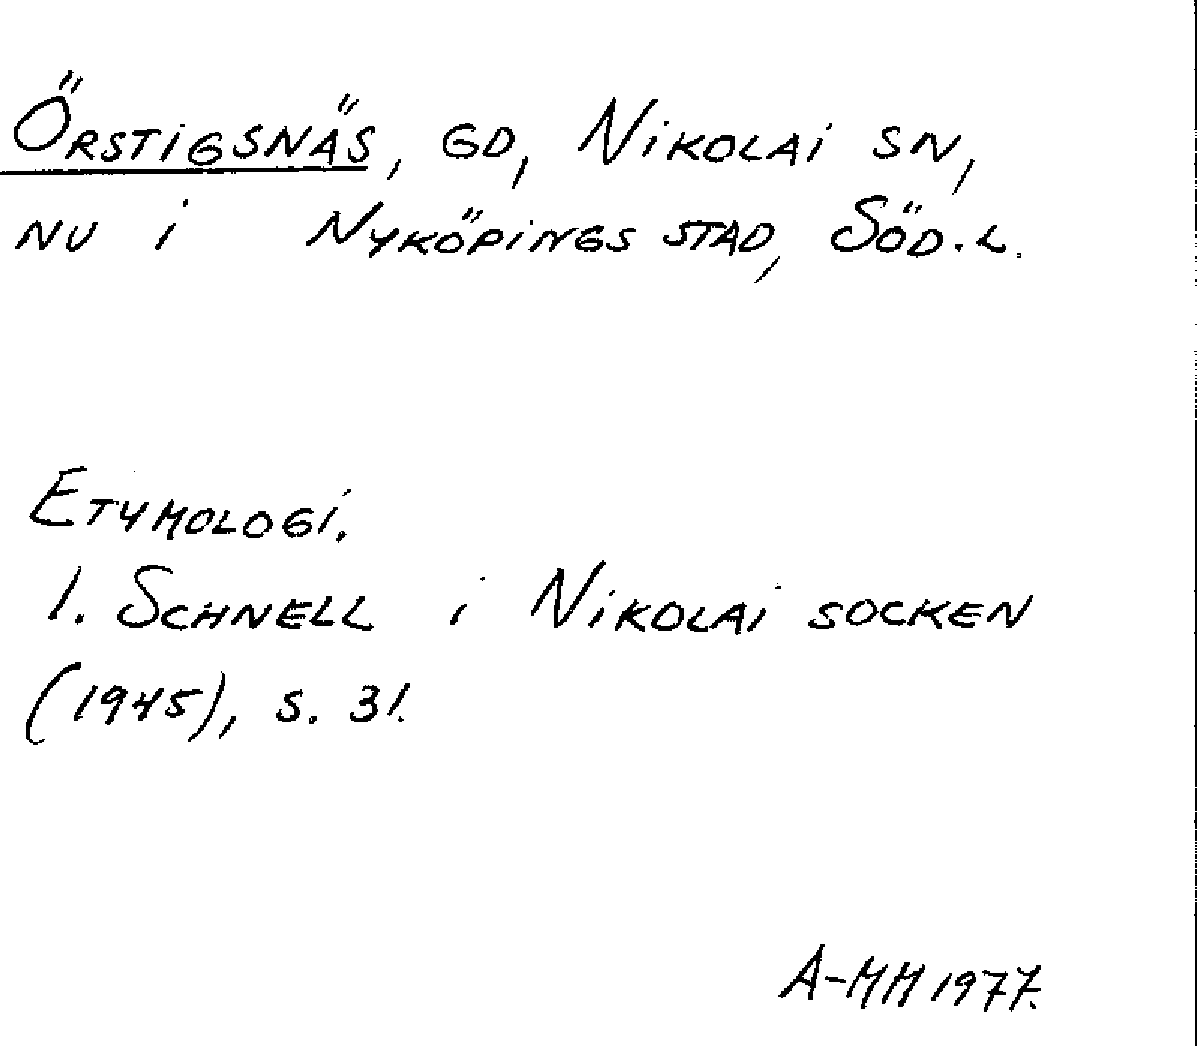 Örstigsnäs, gd, Nikolai sn,
nu i Nyköpings stad, Söd.l.
Etymologi.
I. Schnell i Nikolai socken
(1945), s. 31.
A-MM 1977.